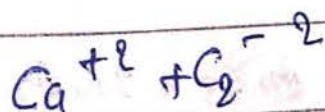 Ca⁺² + C₂⁻²